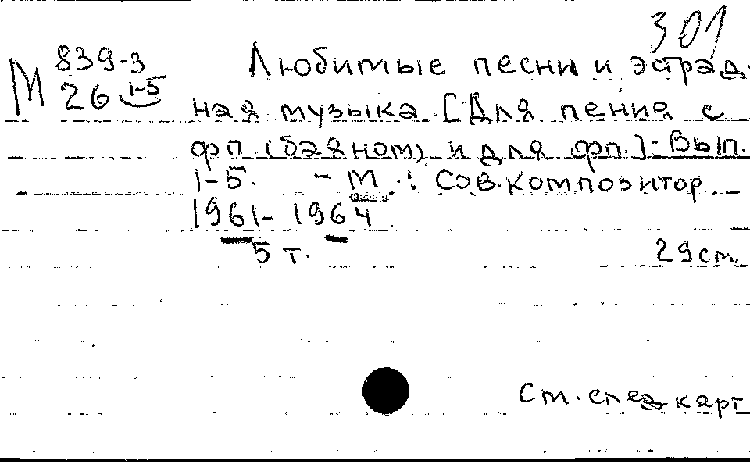 301
М 839-3
26 1-5
Любимые песни и эстрад-
ная музыка [Для пения с
фп (баяном) и для фп.]- Вып.
1-5. - М. : Сов.композитор.
1961- 1964
5 т. 29см
См. след карт